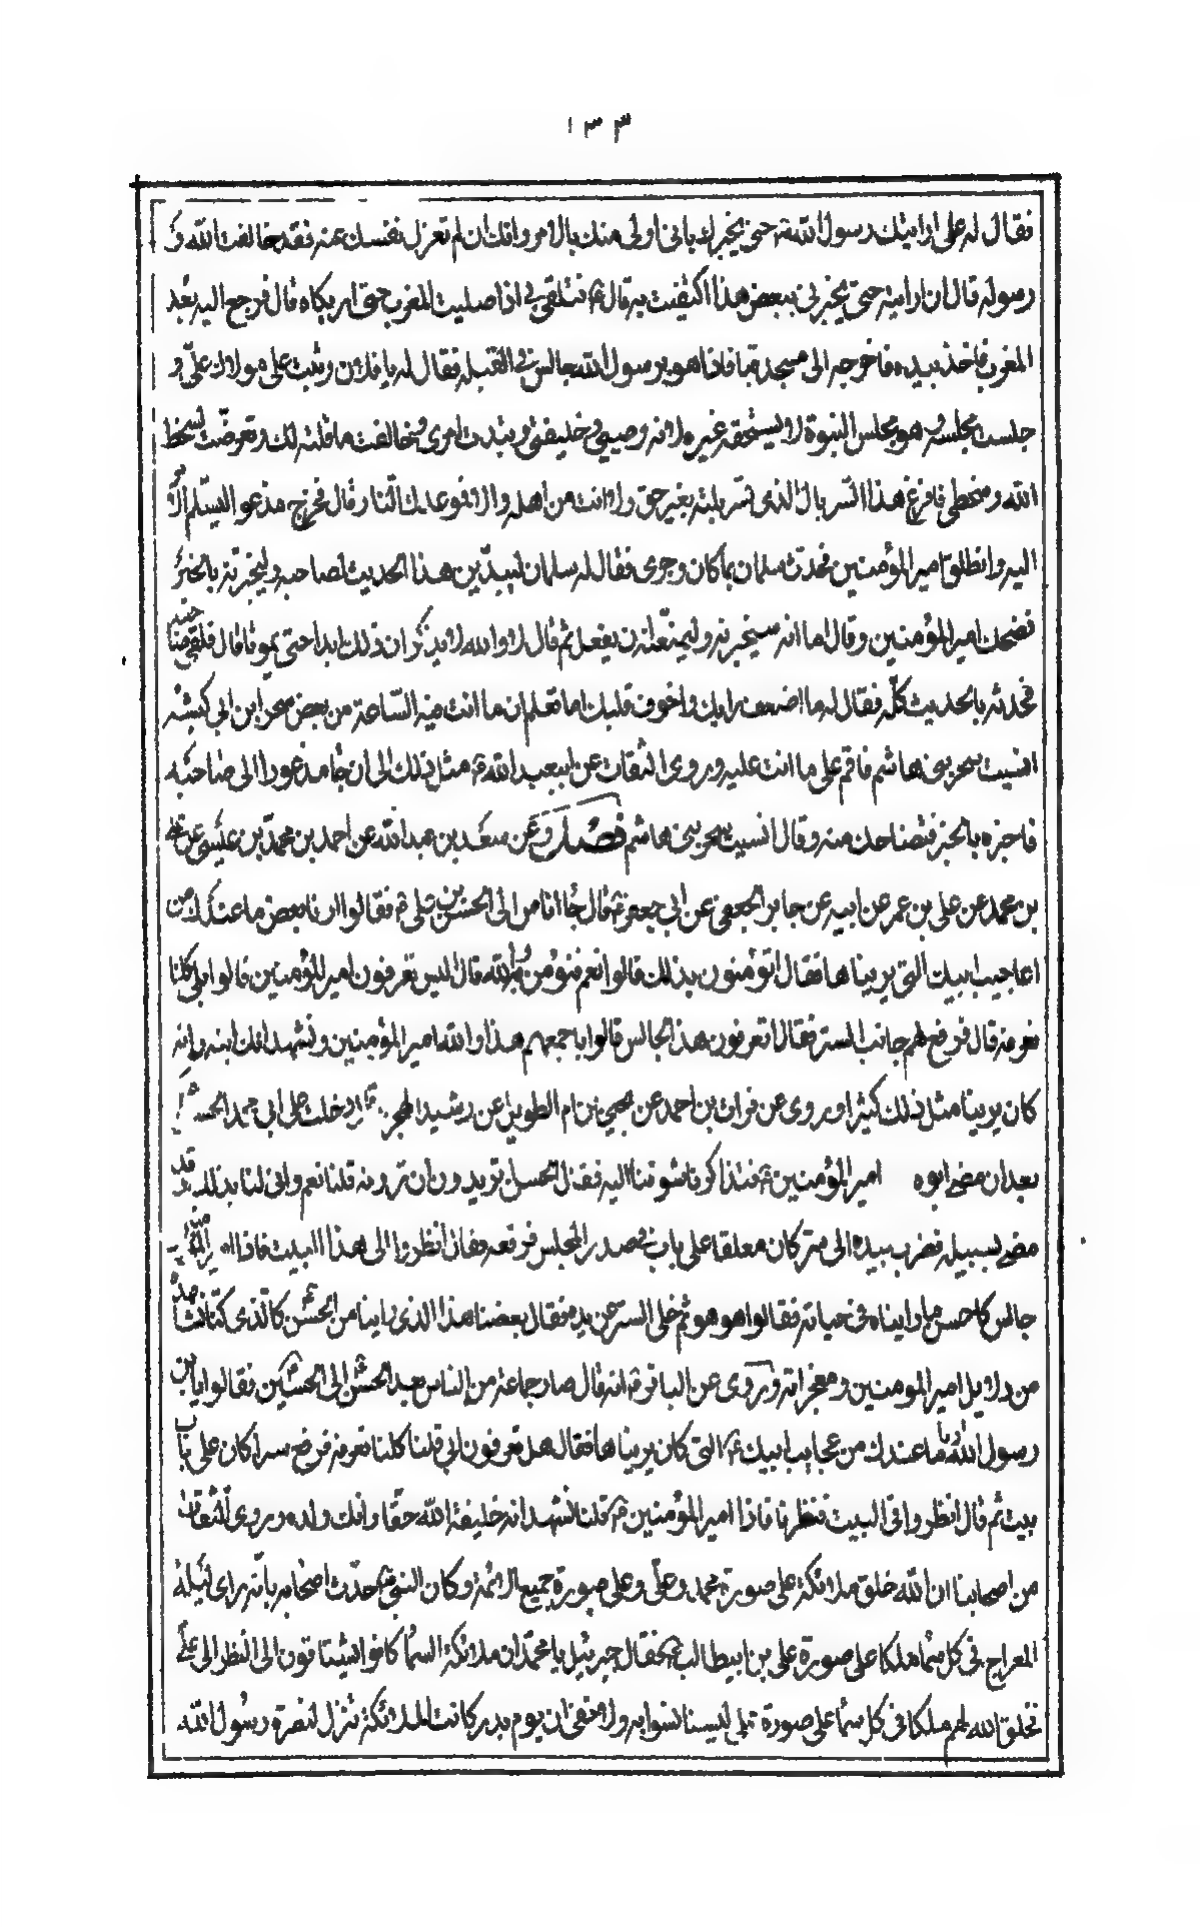 ١٣٣
فقال له علي ارايتك رسول الله ص حتى يخبرك باني اولى منك بالامر وانك ان لم تعزل نفسك عنه فقد خالفت الله و
رسوله قال ان ارايتنيه حتى يخبرني ببعض هذا اكتفيت به قال ع فتلقى بي اذا صليت المغرب حتى اريكاه قال فرجع اليه بعد
المغرب فاخذ بيده فاخرجه الى مسجد قبا فاذا هو برسول الله جالس في القبلة فقال له يا فلان وثبت على مولاك علي و
جلست مجلسه وهو مجلس النبوة لا يستحقه غيره لانه وصيي وخليفتي ونبذت امري وخالفت ما قلته لك وتعرضت لسخط
الله وسخطي فانزع هذا السربال الذي تسربلته بغير حق ولا انت من اهله والا فموعدك النار وقال فخرج مذعورا ليسلم الامر
اليه وانطلق امير المؤمنين فحدث سلمان بما كان وجرى فقال له سلمان ليبدين هذا الحديث لصاحبه وليخبرنه بالخبر
فضحك امير المؤمنين وقال اما انه سيخبرنه وليمنعنه ان يفعل ثم قال لا والله لا يذكران ذلك ابدا حتى يموتا قال فلقي صاحبه
فحدثه بالحديث كله فقال له ما اضعف رايك واخوف قلبك اما تعلم ان ما انت فيه الساعة من بعض سحر ابن ابي كبشة
انسيت سحر بني هاشم فاقم على ما انت عليه وروى الثقات عن ابيعبد الله ع مثل ذلك الى ان جا مذعورا الى صاحبه
فاخبره بالخبر فتضاحك منه وقال انسيت سحر بني هاشم فصل وعن سعد بن عبد الله عن احمد بن محمد بن عيسى عن علي
بن محمد عن علي بن عمر عن ابيه عن جابر الجعفي عن ابي جعفر ع قال جا اناس الى الحسن بن علي ع فقالوا ارنا بعض ما عندك من
اعاجيب ابيك التي يرينا ها فقال اتؤمنون بذلك قالوا نعم نؤمن والله قال اليس تعرفون امير المؤمنين قالوا بلى كلنا
نعرفه قال فرفع لهم جانب الستر فقال اتعرفون هذا الجالس قالوا باجمعهم هذا والله امير المؤمنين ونشهد انك ابنه وانه
كان يرينا مثل ذلك كثيرا وروى عن فرات بن احمد عن يحيى بن ام الطويل عن رشيد الهجري قال دخلت على ابي محمد الحسن
بعد ان مضى ابوه امير المؤمنين ع فتذاكرنا شوقنا اليه فقال الحسن تريدون ان ترونه قلنا نعم وانى لنا بذلك وقد
مضى بسبيله فضرب بيده الى ستر كان معلقا على باب في صدر المجلس فرفعه وقال انظروا الى هذا البيت فاذا امير المؤمنين
جالس كاحسن ما رايناه في حياته فقالوا هو هو ثم خلى الستر عن يده فقال بعضنا هذا الذي راينا من الحسن كالذي كنا نشاهده
من دلايل امير المومنين ومعجزاته وروى عن الباقر ع انه قال صار جماعة من الناس بعد الحسن الى الحسين فقالوا يا بن
رسول الله ما عندك من عجايب ابيك ع التي كان يرينا ها فقال هل تعرفون ابي قلنا كلنا نعرفه فرفع سترا كان على باب
بيت ثم قال انظروا في البيت فنظرنا فاذا امير المؤمنين ع قلنا نشهد انه خليفة الله حقا وانك ولده وروى الثقات
من اصحابنا ان الله خلق ملائكة على صورة محمد وعلي وعلى صورة جميع الائمة وكان النبي ص حدث اصحابه بانه راى ليلة
المعراج في كل سماء ملكا على صورة علي بن ابيطالب ع فقال جبرئيل يا محمد ان ملائكة السما كانوا يشتاقون الى النظر الى علي
فخلق الله لهم ملكا في كل سما على صورة علي ليستانسوا به ولا خفى ان يوم بدر كانت الملائكة تنزل لنصرة رسول الله